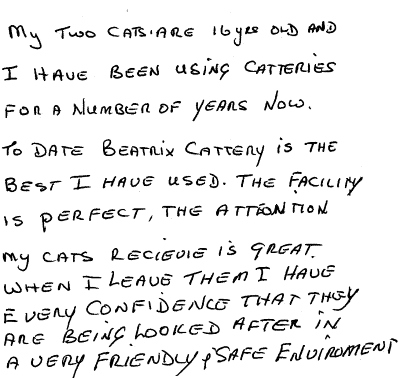 My TWO CATS ARE 16 yrs OLD AND
I HAVE BEEN USING CATTERIES
FOR A NUMBER OF YEARS NOW.
TO DATE BEATRIX CATTERY IS THE
BEST I HAVE USED. THE FACILITY
IS PERFECT, THE ATTENTION
MY CATS RECIEVIE IS GREAT.
WHEN I LEAVE THEM I HAVE
EVERY CONFIDENCE THAT THEY
ARE BEING LOOKED AFTER IN
A VERY FRIENDLY & SAFE ENVIROMENT